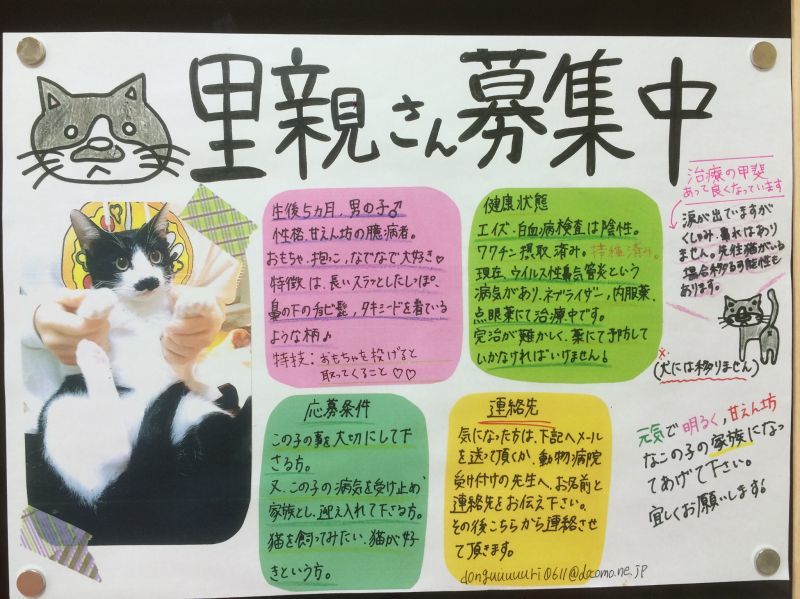 里親さん募集中
生後5カ月、男の子♂
性格、甘えん坊の臆病者。
おもちゃ、抱っこ、なでなで大好き♡
特徴は、長いスラッとしたしっぽ、
鼻の下のチョビ髭、タキシードを着ている
ような柄♪
特技:おもちゃを投げると
取ってくること♡♡
健康状態
エイズ・白血病検査は陰性。
ワクチン摂取済み。
現在、ウイルス性鼻気管炎という
病気があり、ネブライザー、内服薬、
点眼薬にて治療中です。
完治が難かしく、薬にて予防して
いかなければいけません!
治療の甲斐
あって良くなっています
涙が出ていますが
くしゃみ・鼻水はあり
ません。先住猫がいる
場合移る可能性も
あります。
※
(犬には移りません)
応募条件
この子の事を大切にして下
さる方。
又、この子の病気を受け止め
家族とし、迎え入れて下さる方。
猫を飼ってみたい、猫が好
きという方。
連絡先
気になった方は、下記へメール
を送って頂くか、動物病院
受け付けの先生へ、お名前と
連絡先をお伝え下さい。
その後こちらから連絡させ
て頂きます。
donguuuuuri0611@docomo.ne.jp
元気で明るく、甘えん坊
なこの子の家族になっ
てあげて下さい。
宜しくお願いします!